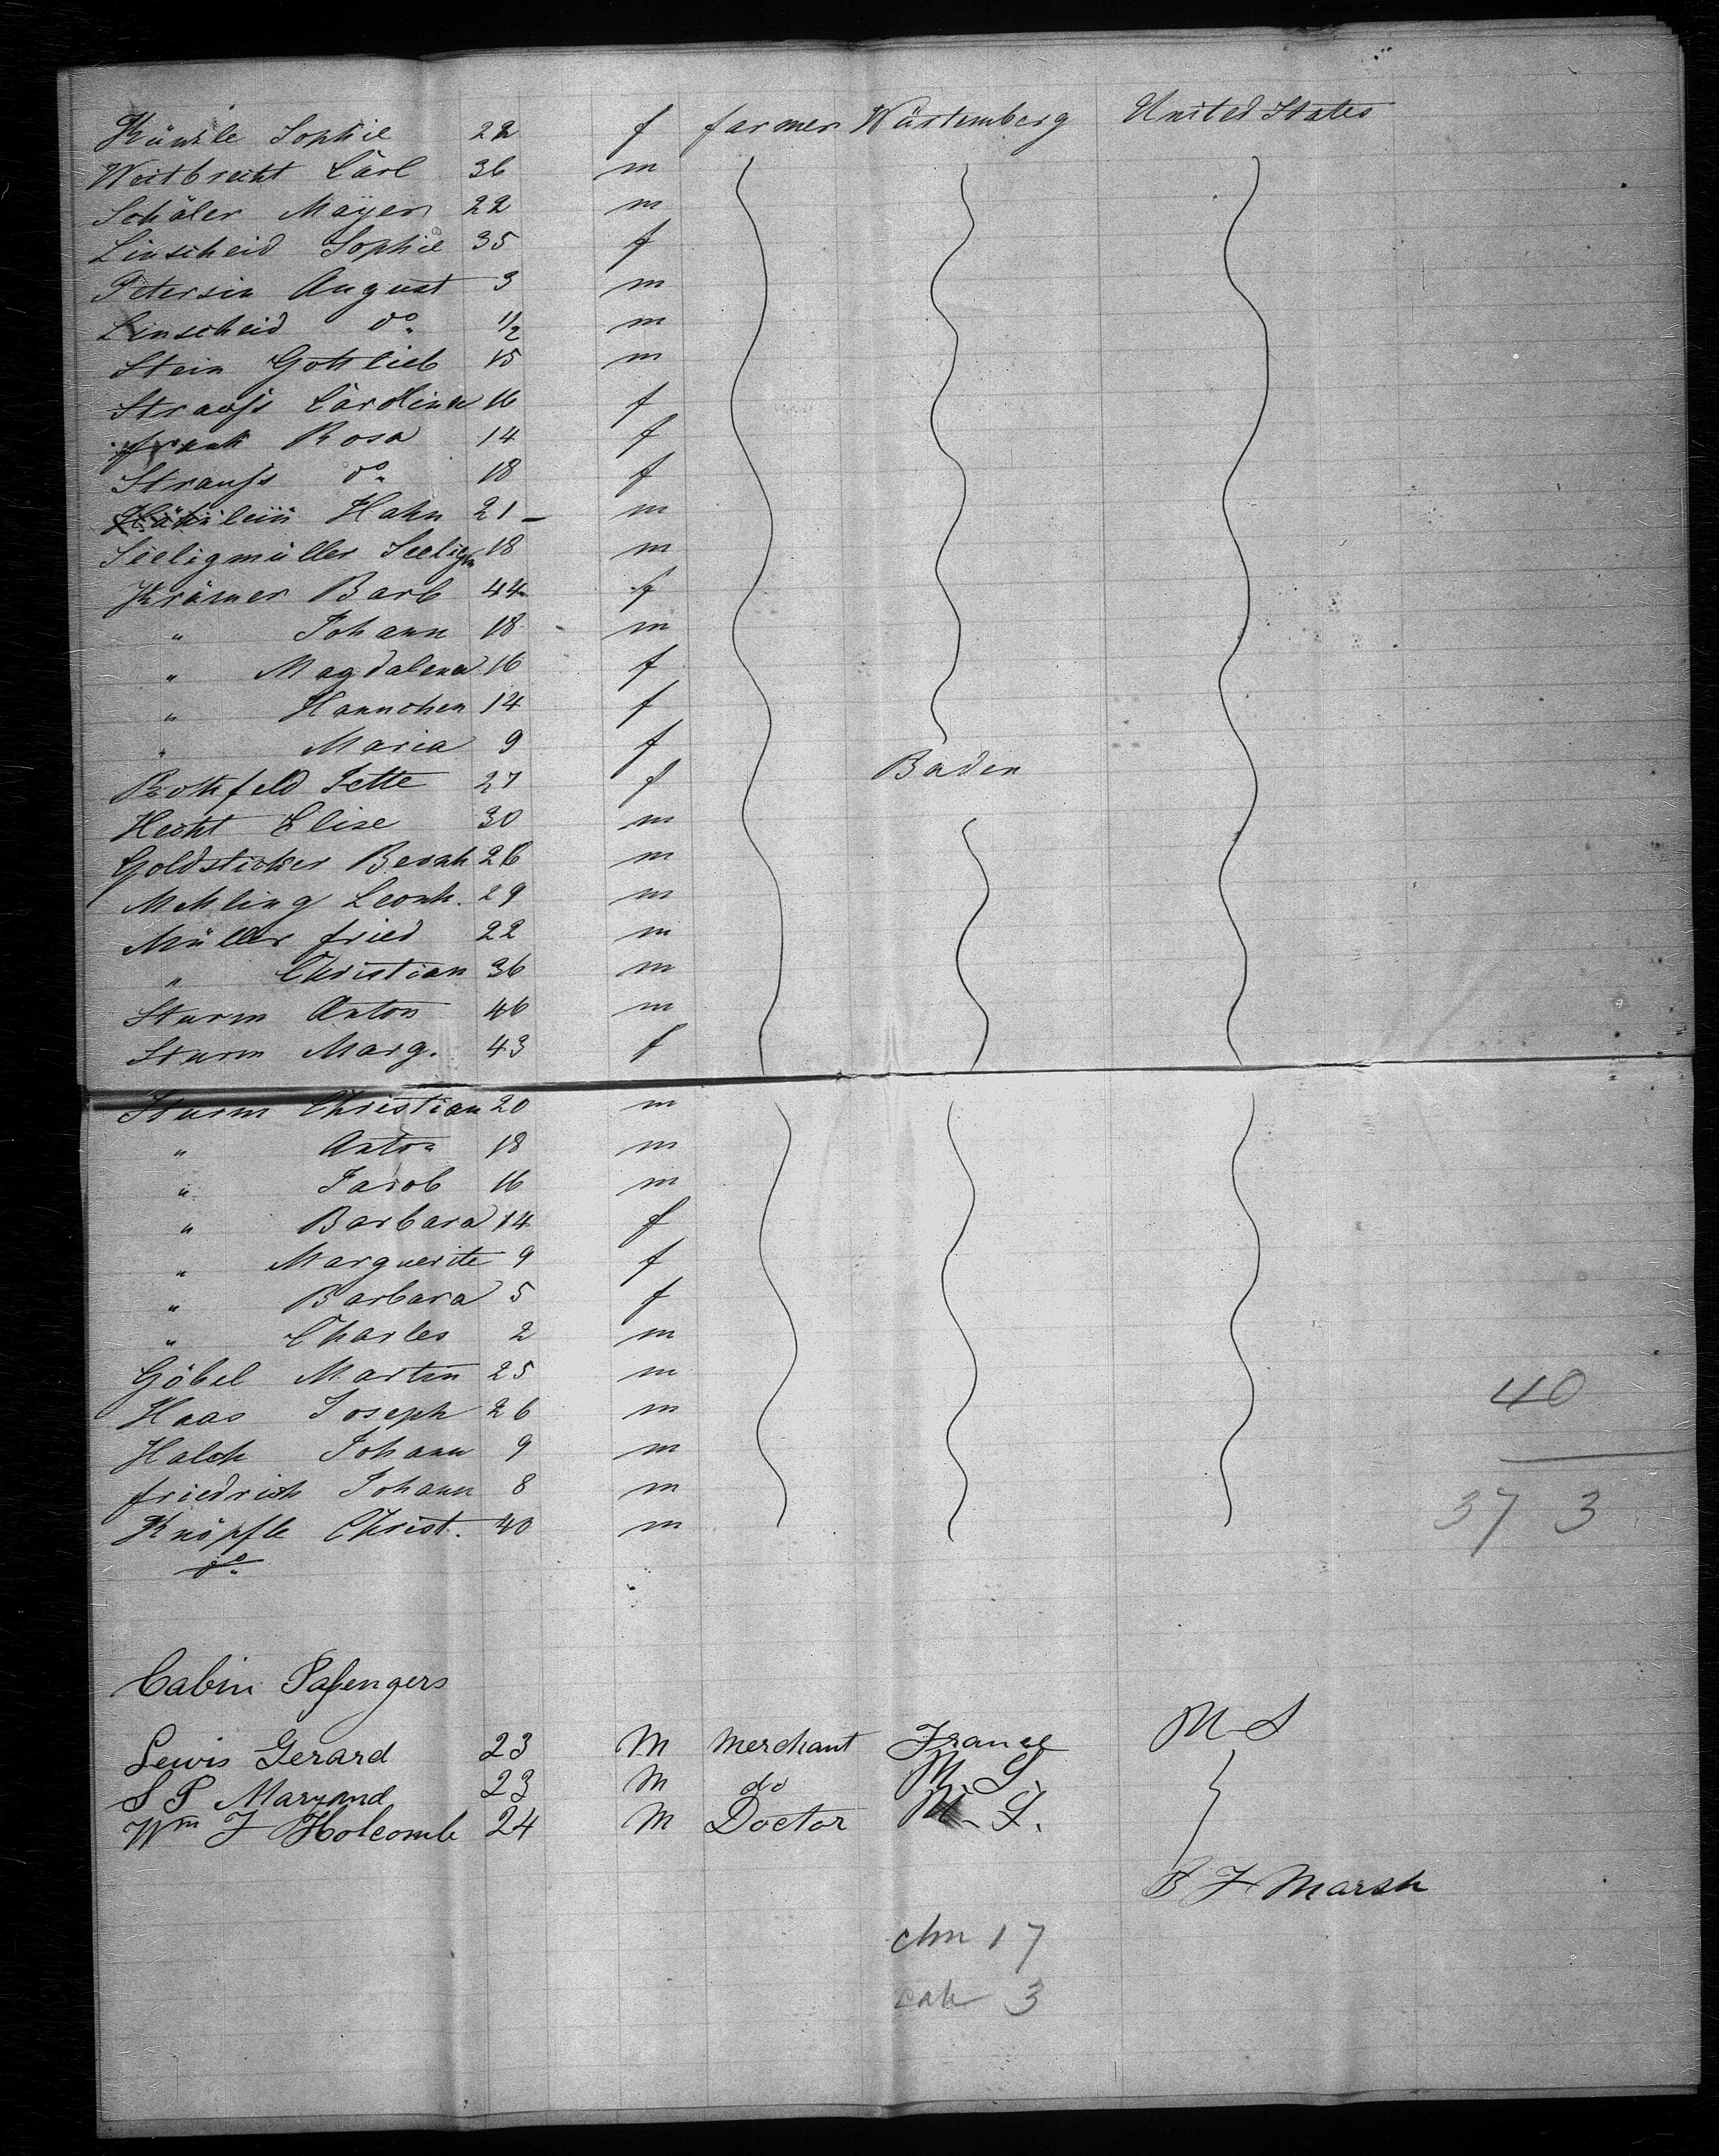 Künzle Sophie 22 f farmer Würtemberg United States
Weitbrecht Carl 36 m
Schäler Mayer 22 m
Linscheid Sophie 35 f
Petersin August 3 m
Linscheid do. 1/2 m
Stein Gottlieb 15 m
Strauss Carolina 16 f
frank Rosa 14 f
Strauss do. 18 f
Hahn 21 - m
Seeligmüller 18 m
Krämer Barb 44 f
" Johann 18 m
" Magdalena 16 f
" Hannchen 14 f
" Maria 9 f
Rothfeld Jette 27 f Baden
Hecht Elise 30 m
Goldsticker 26 m
Mehling Leonh. 29 m
Müller fried 22 m
" Christian 36 m
Sturm Anton 46 m
Sturm Marg. 43 f
Sturm Christian 20 m
" Anton 18 m
" Jacob 16 m
" Barbara 14 f
" Marguerite 9 f
" Barbara 5 f
" Charles 2 m
Göbel Martin 25 m
40
Haas Joseph 26 m
Halch Johann 9 m
friedrich Johann 8 m
37 3
Knöpfle Christ. 40 m
do.
Cabin Passengers
Lewis Gerard 23 M Merchant France U S
S P 23 M do U S.
Wm F Holcomb 24 M Doctor U S.
B F Marsh
chn 17
cab 3